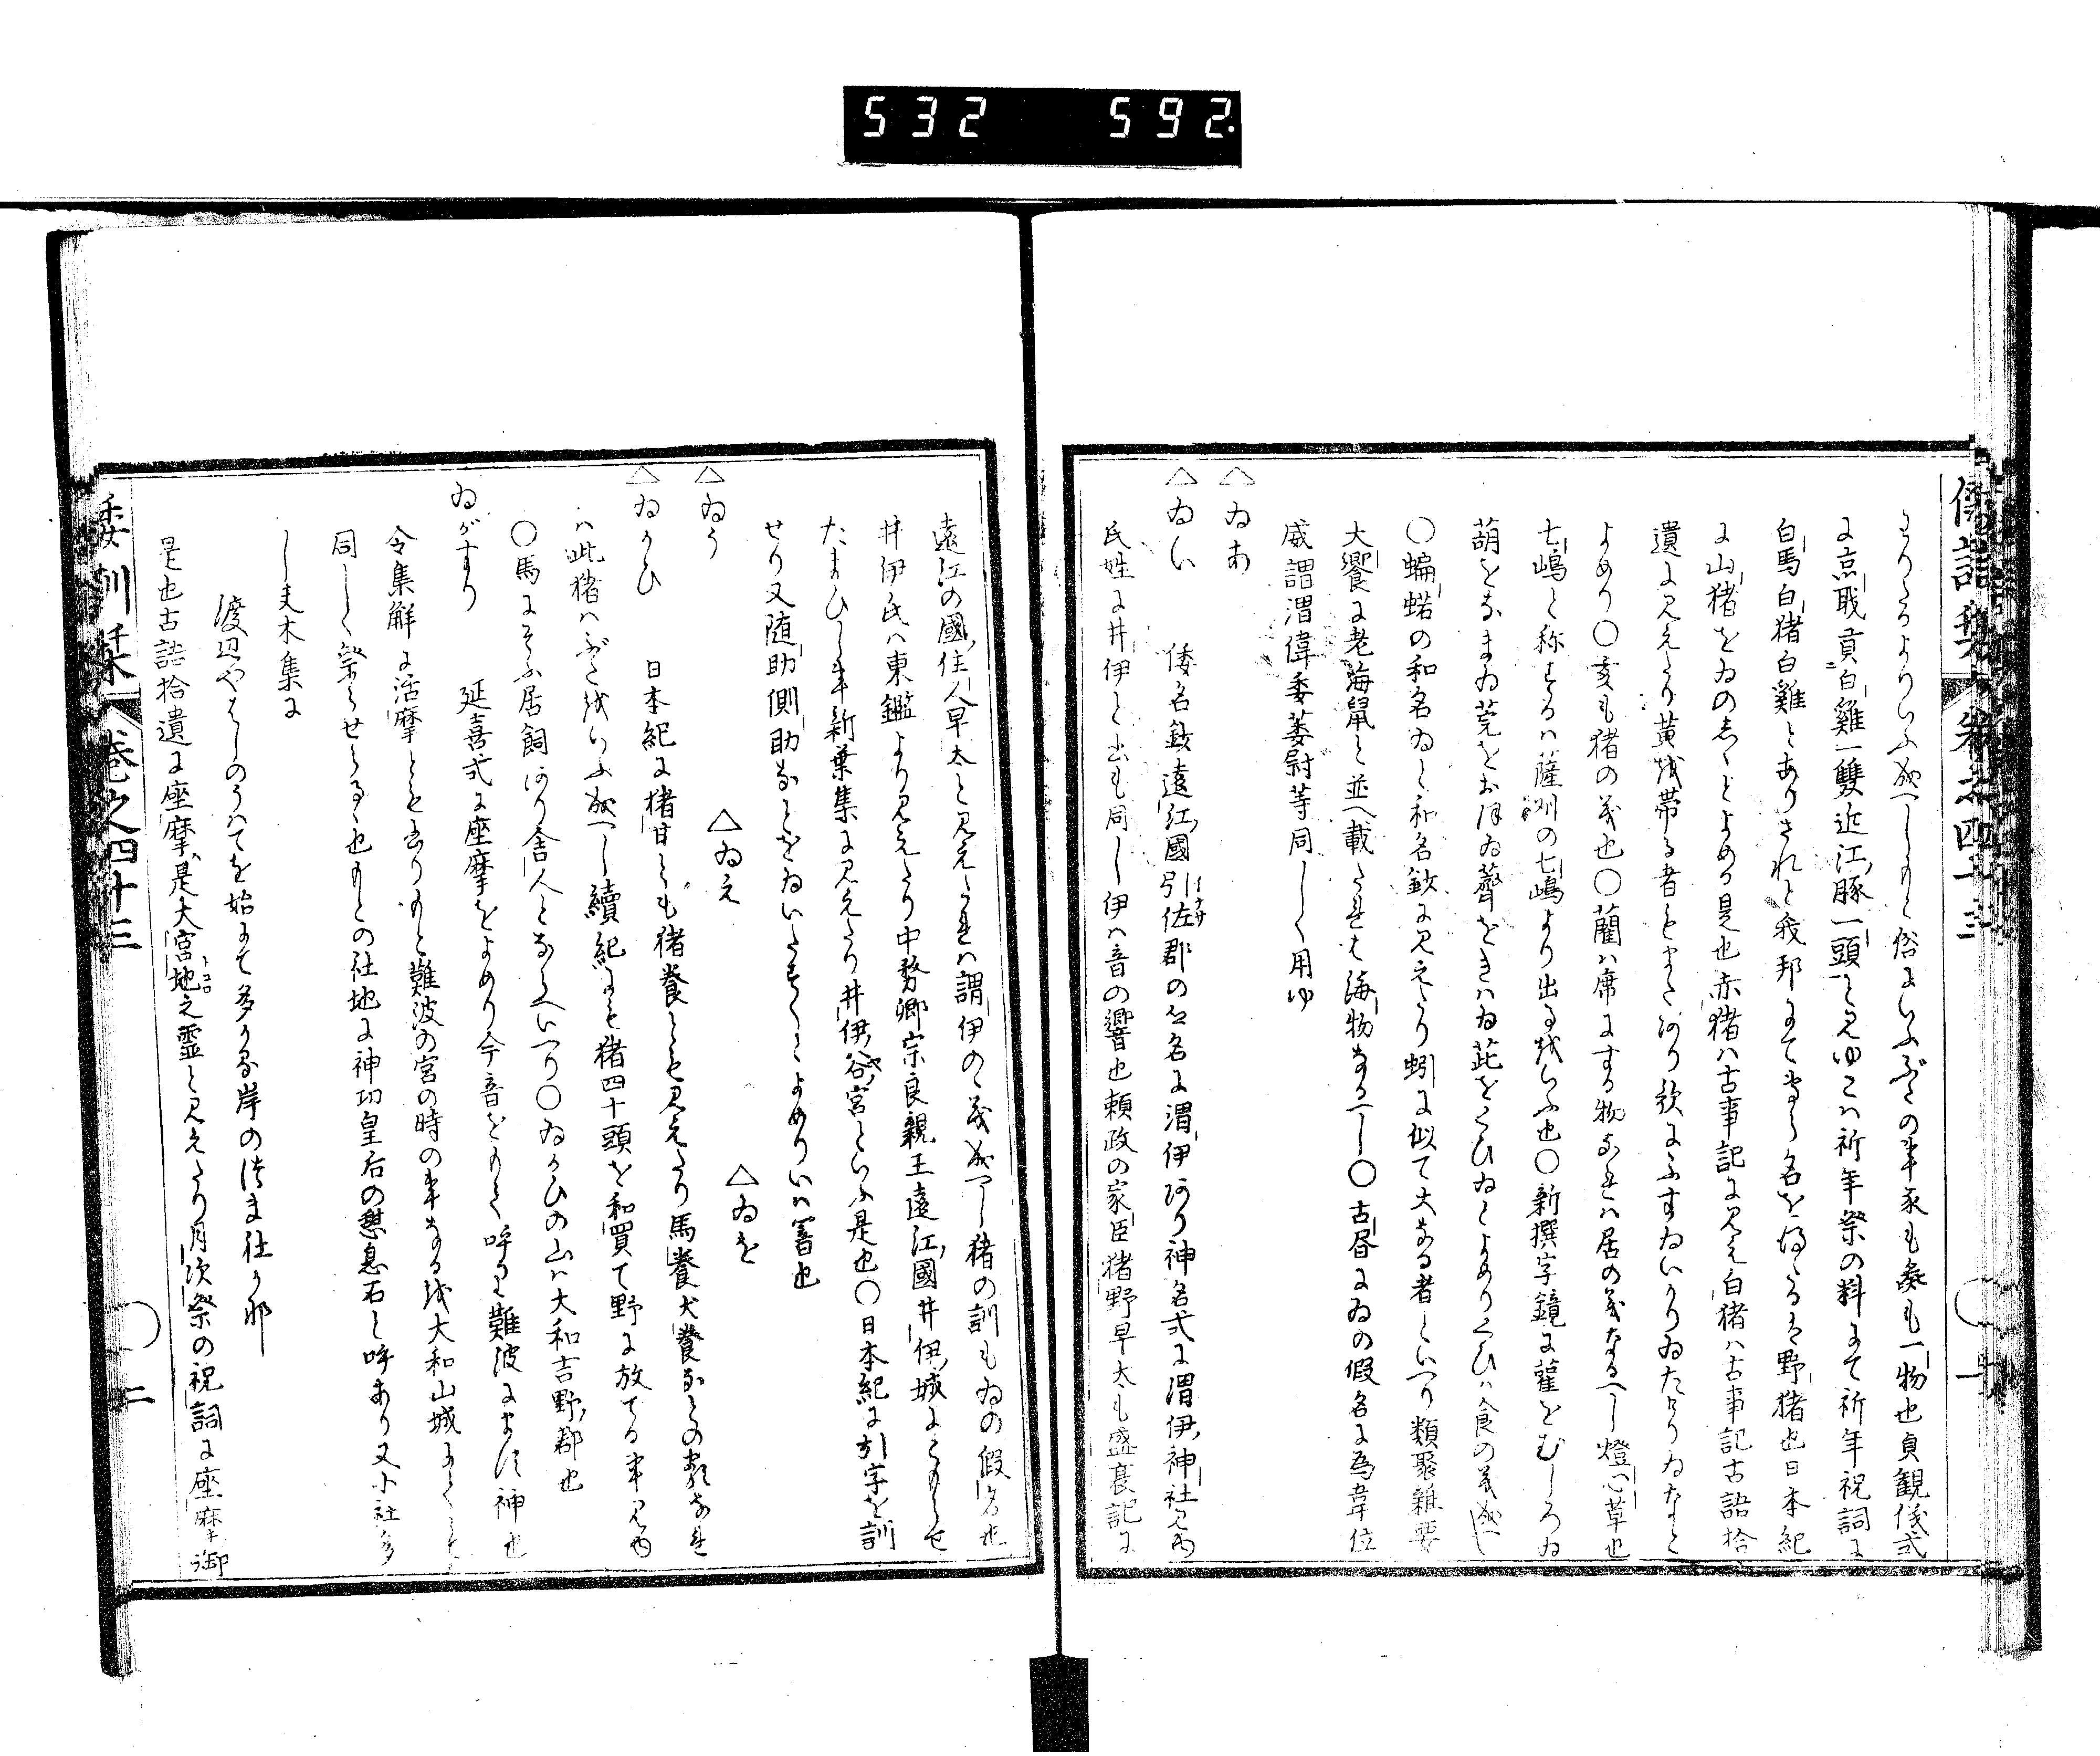 532 592.
倭訓栞 巻之四十三 一
よりくるよりいふ成へしもと俗にいふぶたの事豕も彘も一物也貞観儀式
に京職貢白雞一雙近江豚一頭と見ゆこハ祈年祭の料にて祈年祝詞に
白馬白猪白雞とありされと我邦にて専ら名を得たるは野猪也日本紀
に山猪をゐのしゝとよめる是也赤猪ハ古事記に見え白猪ハ古事記古語拾
遺に見えたり黄を帯る者もまたあり歌にふすゐいかりゐたけりゐなと
よめり〇亥も猪の義也〇藺ハ席にする物なれは居の義なるへし燈心草也
七嶋と称するハ薩州の七嶋より出るをいふ也〇新撰字鏡に雚をむしろゐ
葫をなまゐ莞をおほゐ薺をきはゐ茈をくひゐとよめりくひハ食の義成へし
〇蝙蝠の和名ゐと和名鈔に見えたり蚓に似て大なる者といへり類聚雑要
大饗に老海鼠と並へ載たれは海物なるへし〇古昼にゐの假名に為韋位
威謂渭偉委萎尉等同しく用ゆ
△ゐあ
△ゐい 倭名鈔遠江國引佐郡の郷名に渭伊あり神名式に渭伊神社見ゆ
氏姓に井伊と書も同し伊ハ音の響也頼政の家臣猪野早太も盛衰記に
遠江の國住人早太と見えたれハ謂伊のゝ義成へし猪の訓もゐの假名也
井伊氏ハ東鑑より見えたり中務卿宗良親王遠江國井伊城にこもらせ
たまひし事新葉集に見えたり井伊谷宮といふ是也〇日本紀に引字を訓
せり又随助側助なとをゐいたすくとよめりいハ署也
△ゐう △ゐえ △ゐを
△ゐかひ 日本紀に猪甘とも猪養とも見えたり馬養犬養なとの類なれ
ハ此猪ハぶたをいふ成へし續紀にも猪四十頭を和買て野に放てる事見ゆ
〇馬にそふ居飼あり舎人となるへいへり〇ゐかひの山ハ大和吉野郡也
ゐがすり 延喜式に座摩をよめり今音をもて呼り難波にます神也
令集解に活摩とも書りもと難波の宮の時の事なるを大和山城にても
同しく祭らせらるゝ也もとの社地に神功皇后の憩息石と呼あり又小社多
し夫木集に
渡辺やはしのうへてを始にて多かる岸のつま社か那
是也古語拾遺に座摩是大宮地之霊と見えたり月次祭の祝詞に座摩御
倭訓栞 巻之四十三 二